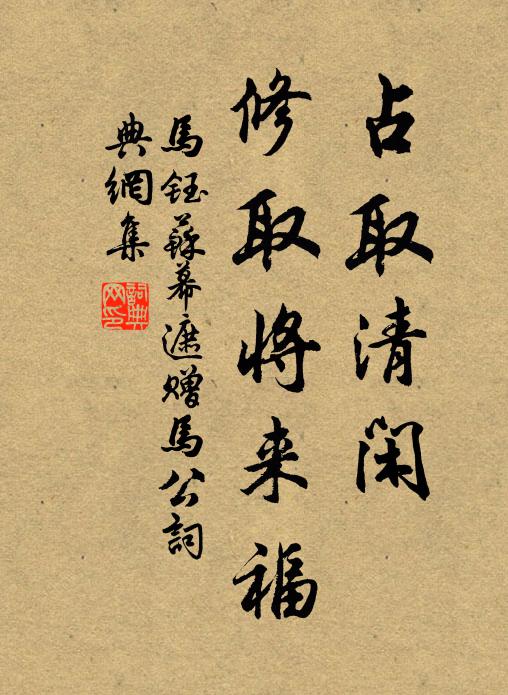 占取清閑
修取将来福
馬鈺蘇幕遮贈馬公詞
典網集
詞典
网印